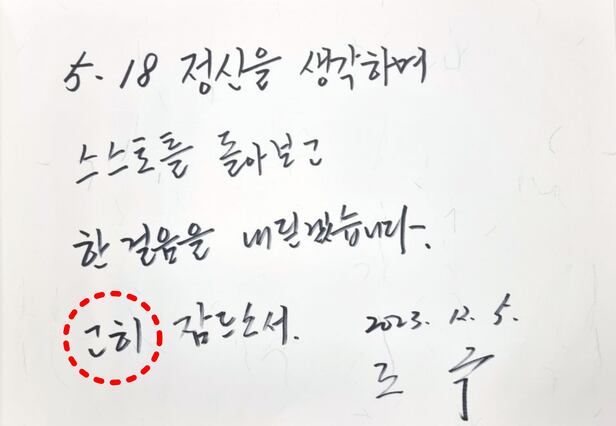 5·18 정신을 생각하며
스스로를 돌아보고
한 걸음을 내딛겠습니다.
고히 잠드소서.
2023. 12. 5.
조국